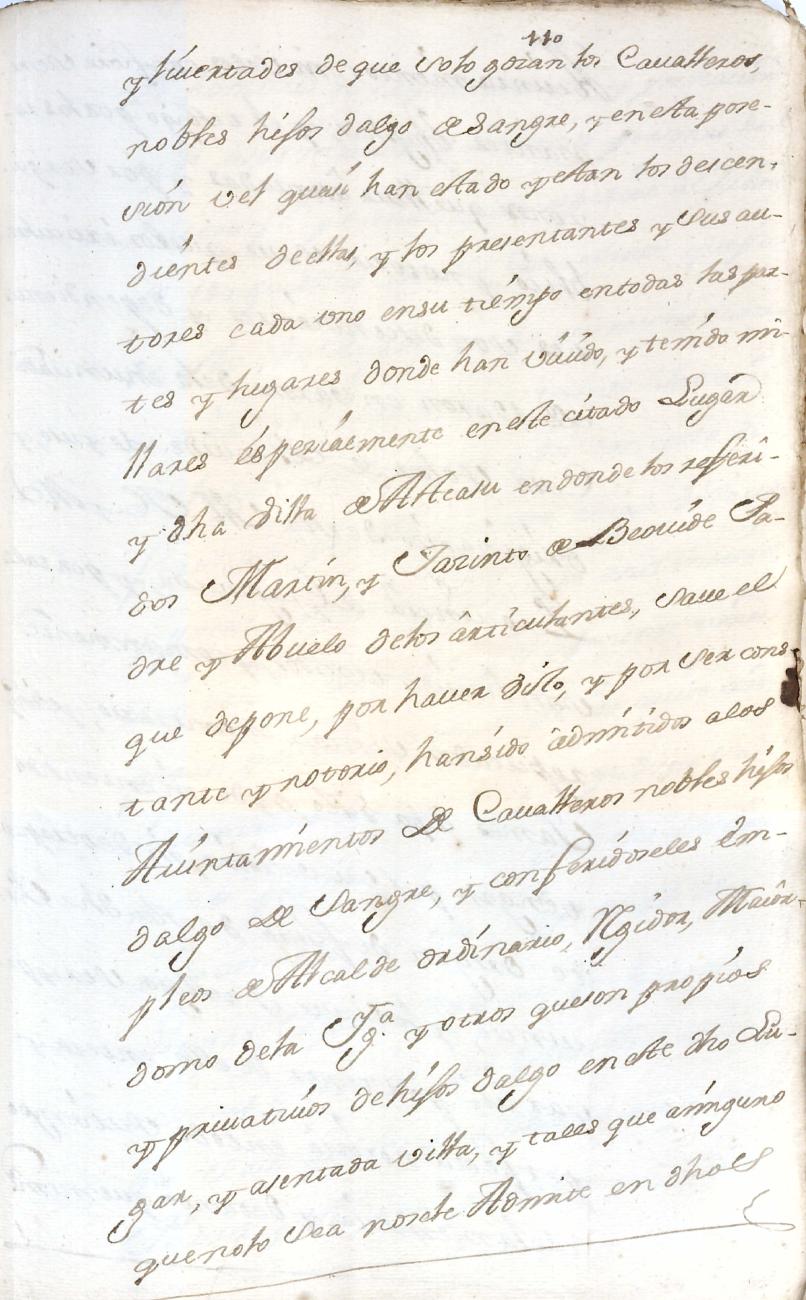 110
y livertades de que solo gozan los Cavalleros,
nobles hijos dalgo de Sangre, y en esta pose-
sión vel quasi han estado y estan los descen-
dientes de ellas, y los presentantes y sus au-
tores cada uno en su tiempo en todas las par-
tes y lugares donde han vivido, y tenido mi-
llares éspecialmente en este citado Lugar
y dha Villa de Alcasu en donde los referi-
dos Martín, y Jazinto de Beovide Pa-
dre y Abuelo delos articulantes, save el
que depone, por haver visto, y por ser cons-
tante y notorio, han sido âdmitidos alos
Aiuntamientos De Cavalleros nobles hijos
dalgo De Sangre, y conferidoseles êm-
pleos de Alcalde ordinario, Rgidor, Maiôr-
domo dela Yga. y otros que son propios
y privativos de hijos dalgo en este dho Lu-
gar, y asentada villa, y tales que aninguno
que nolo sea nosele Admite en dhos